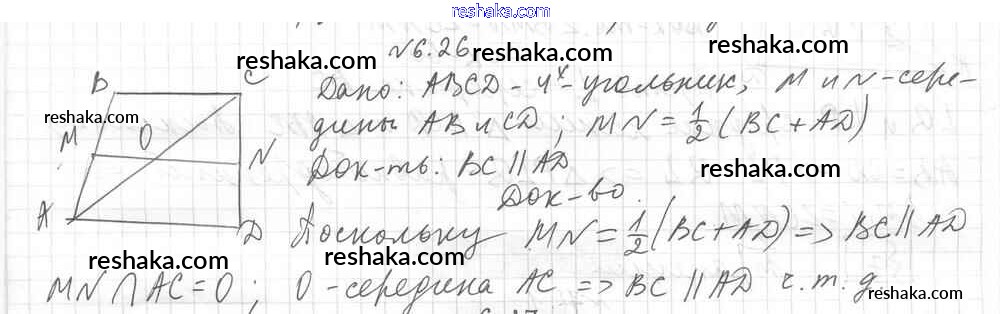 reshaka.com
№6.26
reshaka.com
reshaka.com
B C
Дано: ABCD - 4х-угольник, M и N - сере-
reshaka.com
M O N
дины AB и CD; MN = 1/2 (BC + AD)
Док-ть: BC || AD
reshaka.com
Док-во.
A D
Поскольку MN = 1/2 (BC + AD) => BC || AD
reshaka.com
reshaka.com
MN ∩ AC = O; O - середина AC => BC || AD ч.т.д
reshaka.com